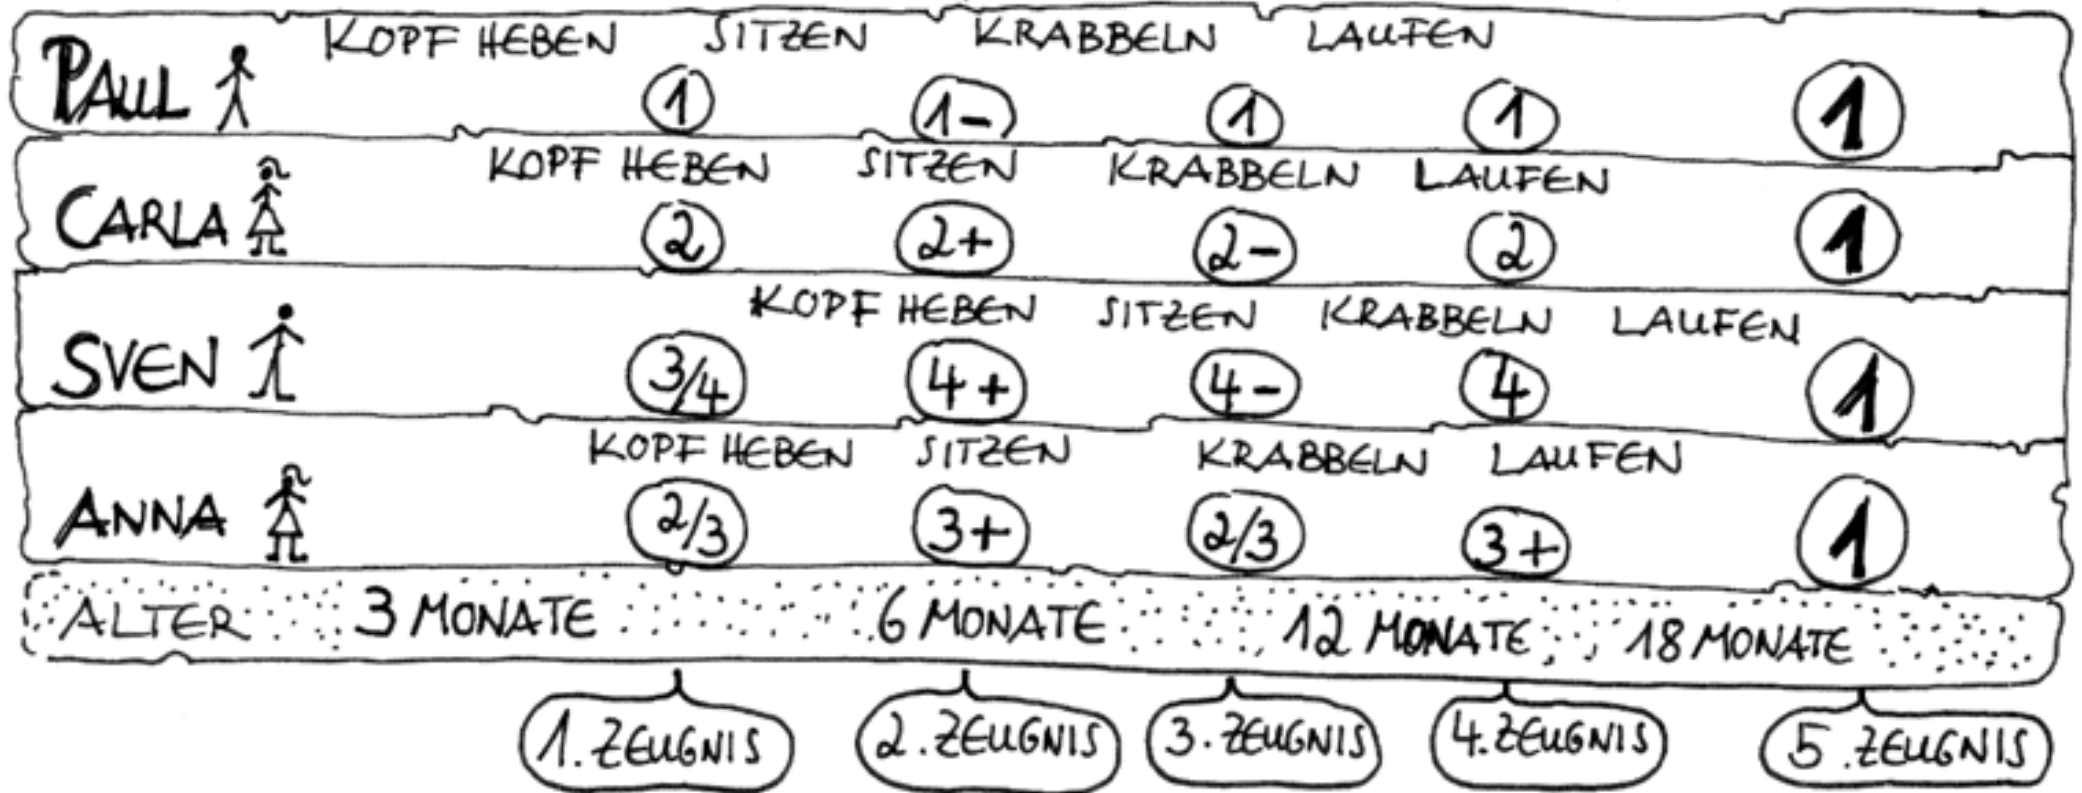 KOPF HEBEN SITZEN KRABBELN LAUFEN
PAUL 1 1- 1 1 1
KOPF HEBEN SITZEN KRABBELN LAUFEN
CARLA 2 2+ 2- 2 1
KOPF HEBEN SITZEN KRABBELN LAUFEN
SVEN 3/4 4+ 4- 4 1
KOPF HEBEN SITZEN KRABBELN LAUFEN
ANNA 2/3 3+ 2/3 3+ 1
ALTER 3 MONATE 6 MONATE 12 MONATE 18 MONATE
1. ZEUGNIS 2. ZEUGNIS 3. ZEUGNIS 4. ZEUGNIS 5. ZEUGNIS